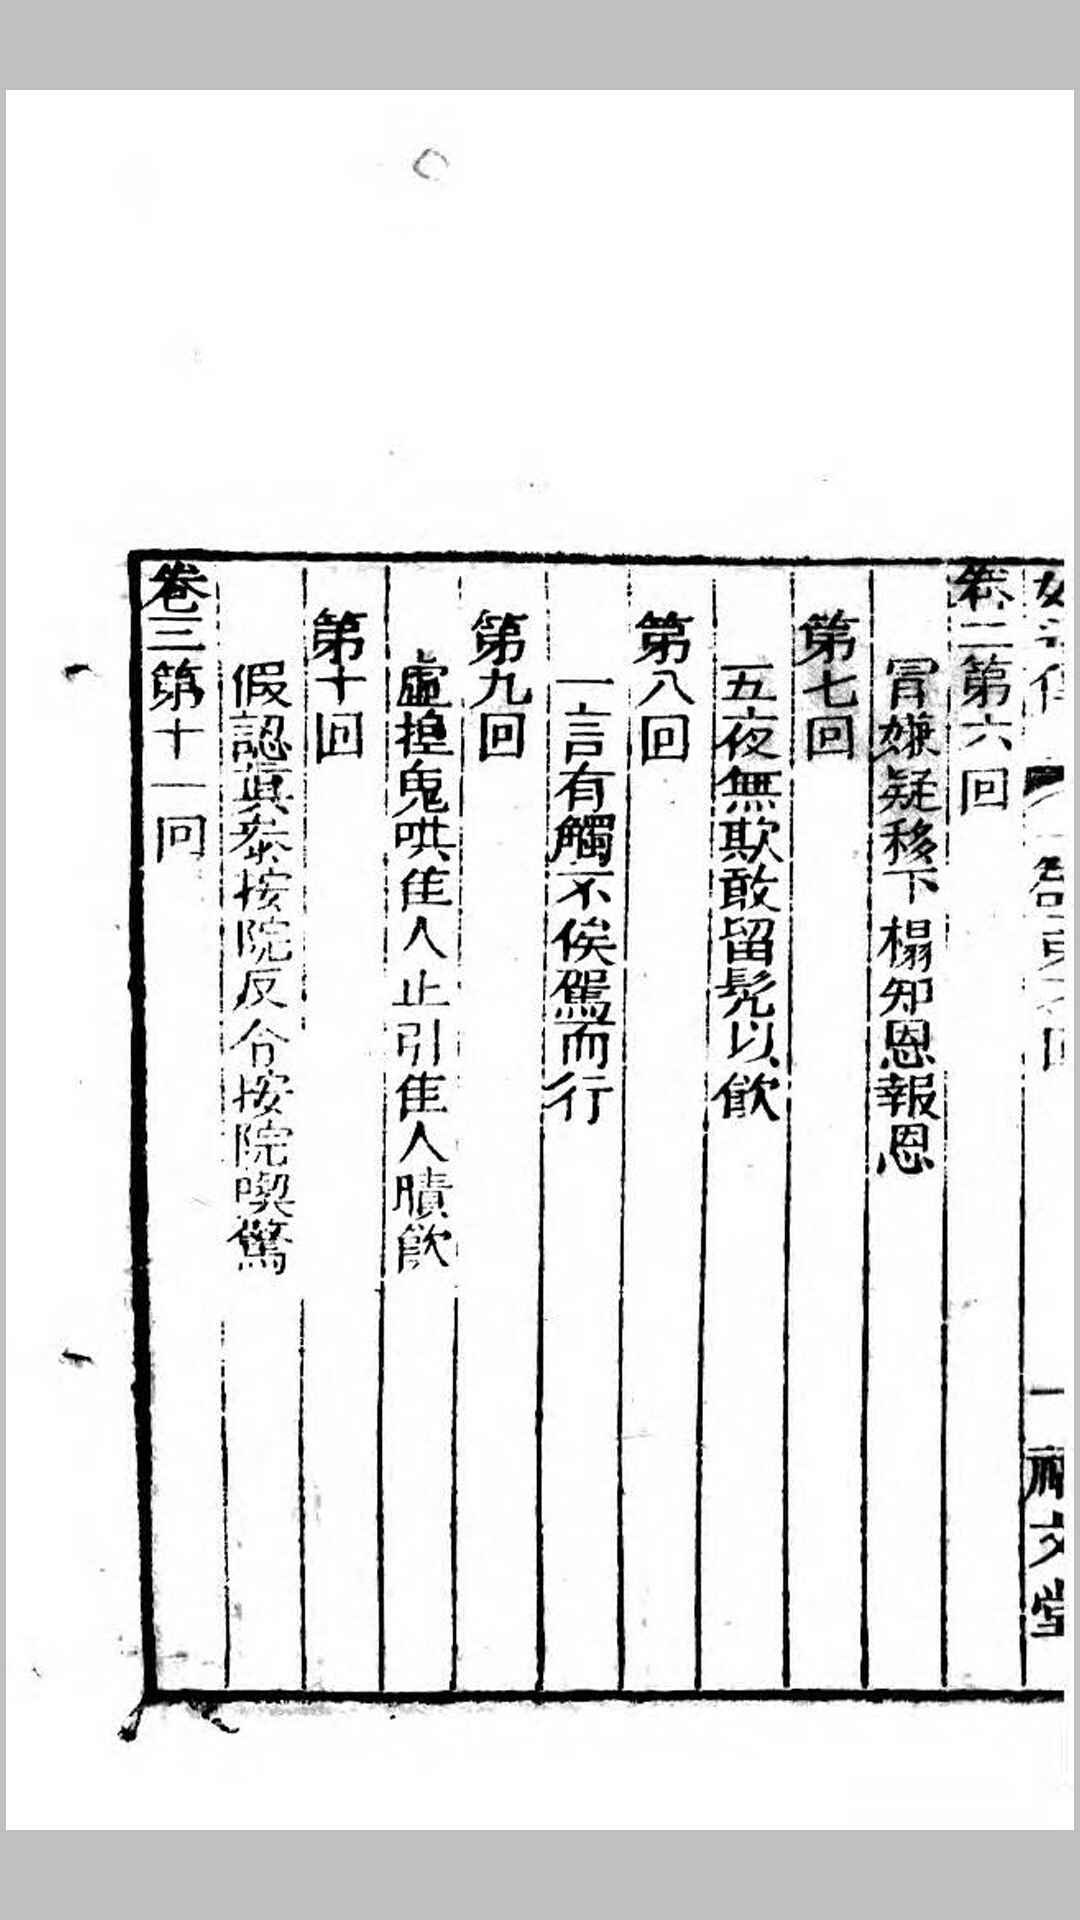 卷二第六回
冒嫌疑移下榻知恩報恩
第七回
五夜無欺敢留髡以飮
第八回
一言有觸不俟駕而行
第九回
虛捏鬼哄佳人止引佳人賾飮
第十回
假認眞叅按院反令按院喫驚
卷三第十一回